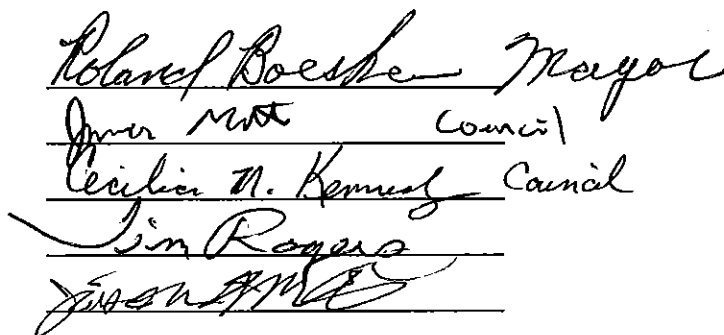 Roland Boeske Mayor
Mott Council
Cecilia M. Kennedy Council
Jim Rogers